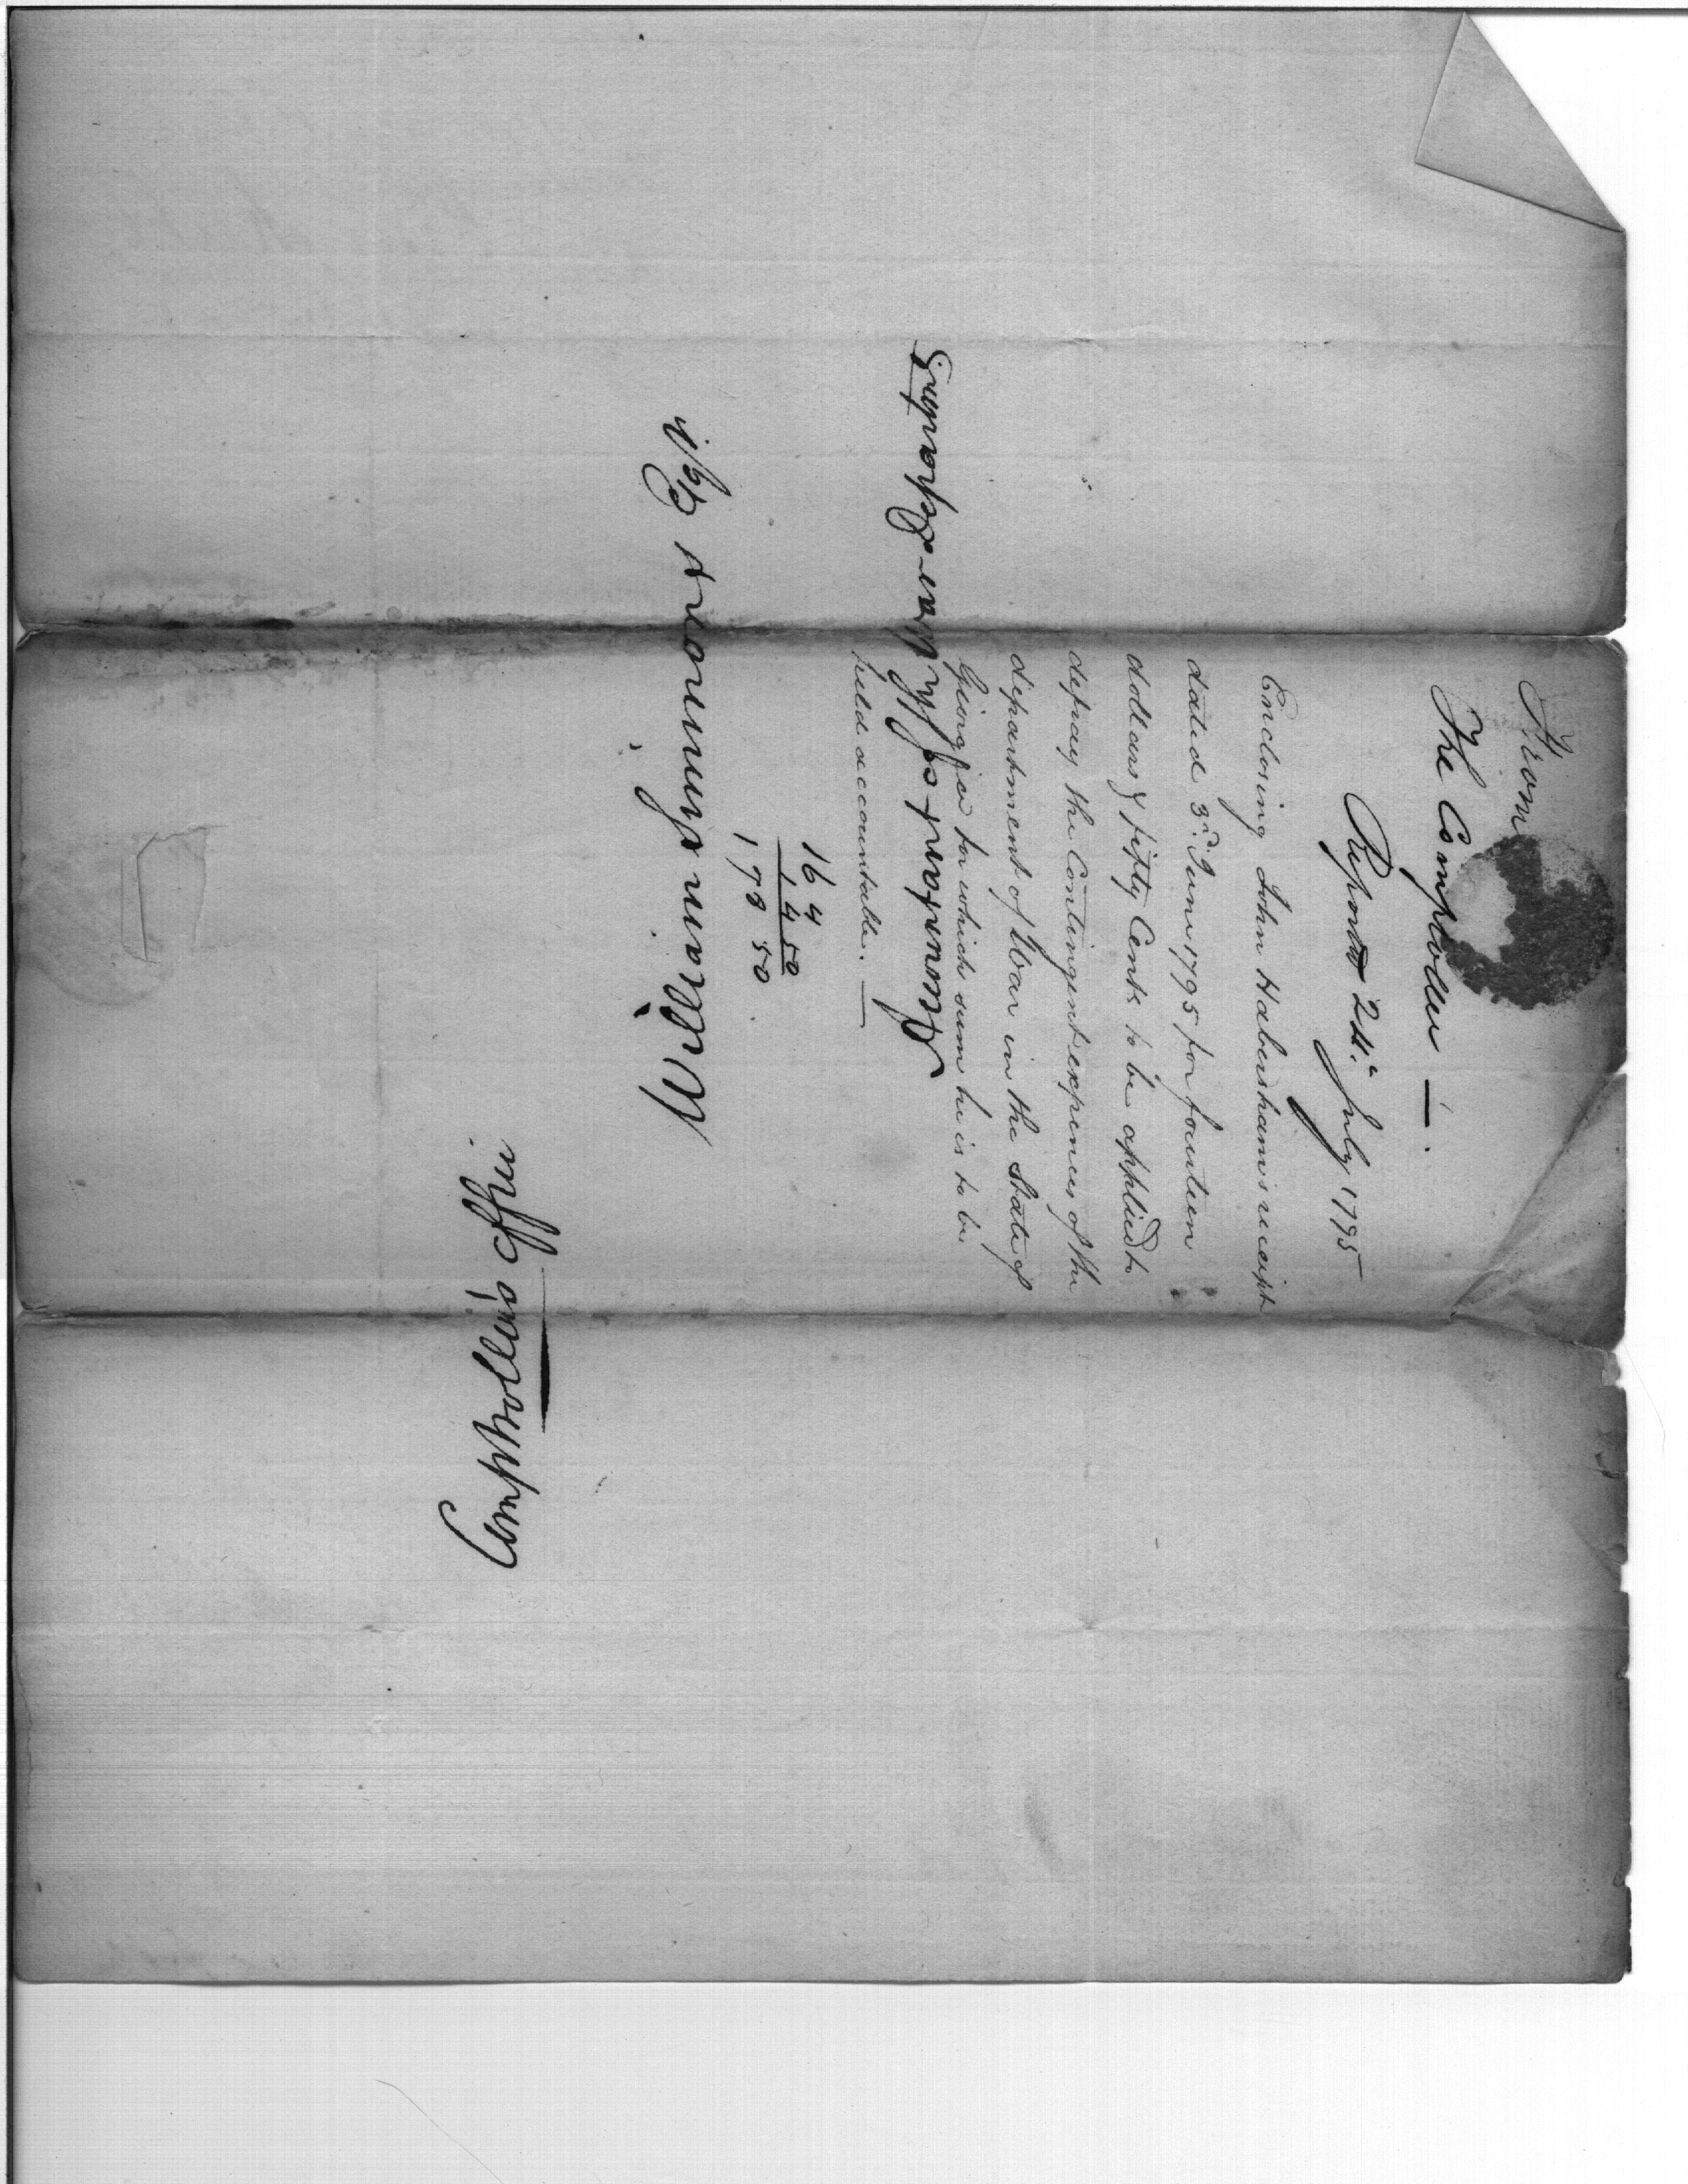 From
The Comptroller —.
Reported 24th July 1795
Enclosing John Habersham's receipt
dated 3d. June 1795 for fourteen
dollars & fifty Cents to be applied to
defray the Contingent expences of the
department of War in the State of
Georgia for which sum he is to be
held accountable. —
164
14 50
178 50
William Simmons Esqr.
Accountant of the War Department
Comptroller's Office